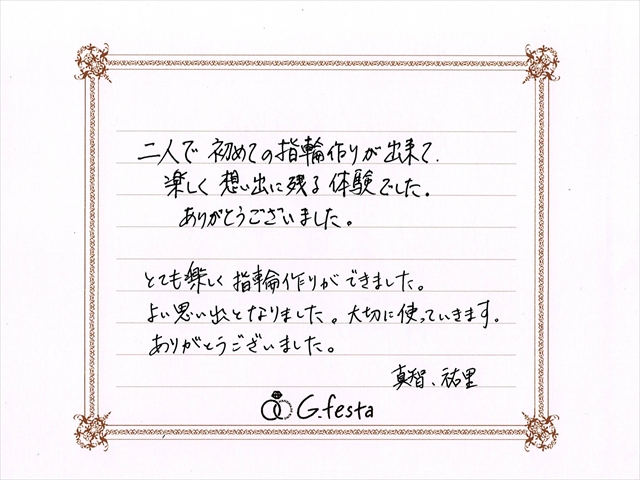 二人で初めての指輪作りが出来て、
楽しく想い出に残る体験でした。
ありがとうございました。
とても楽しく指輪作りができました。
よい思い出となりました。大切に使っていきます。
ありがとうございました。
真智、祐里
G.festa